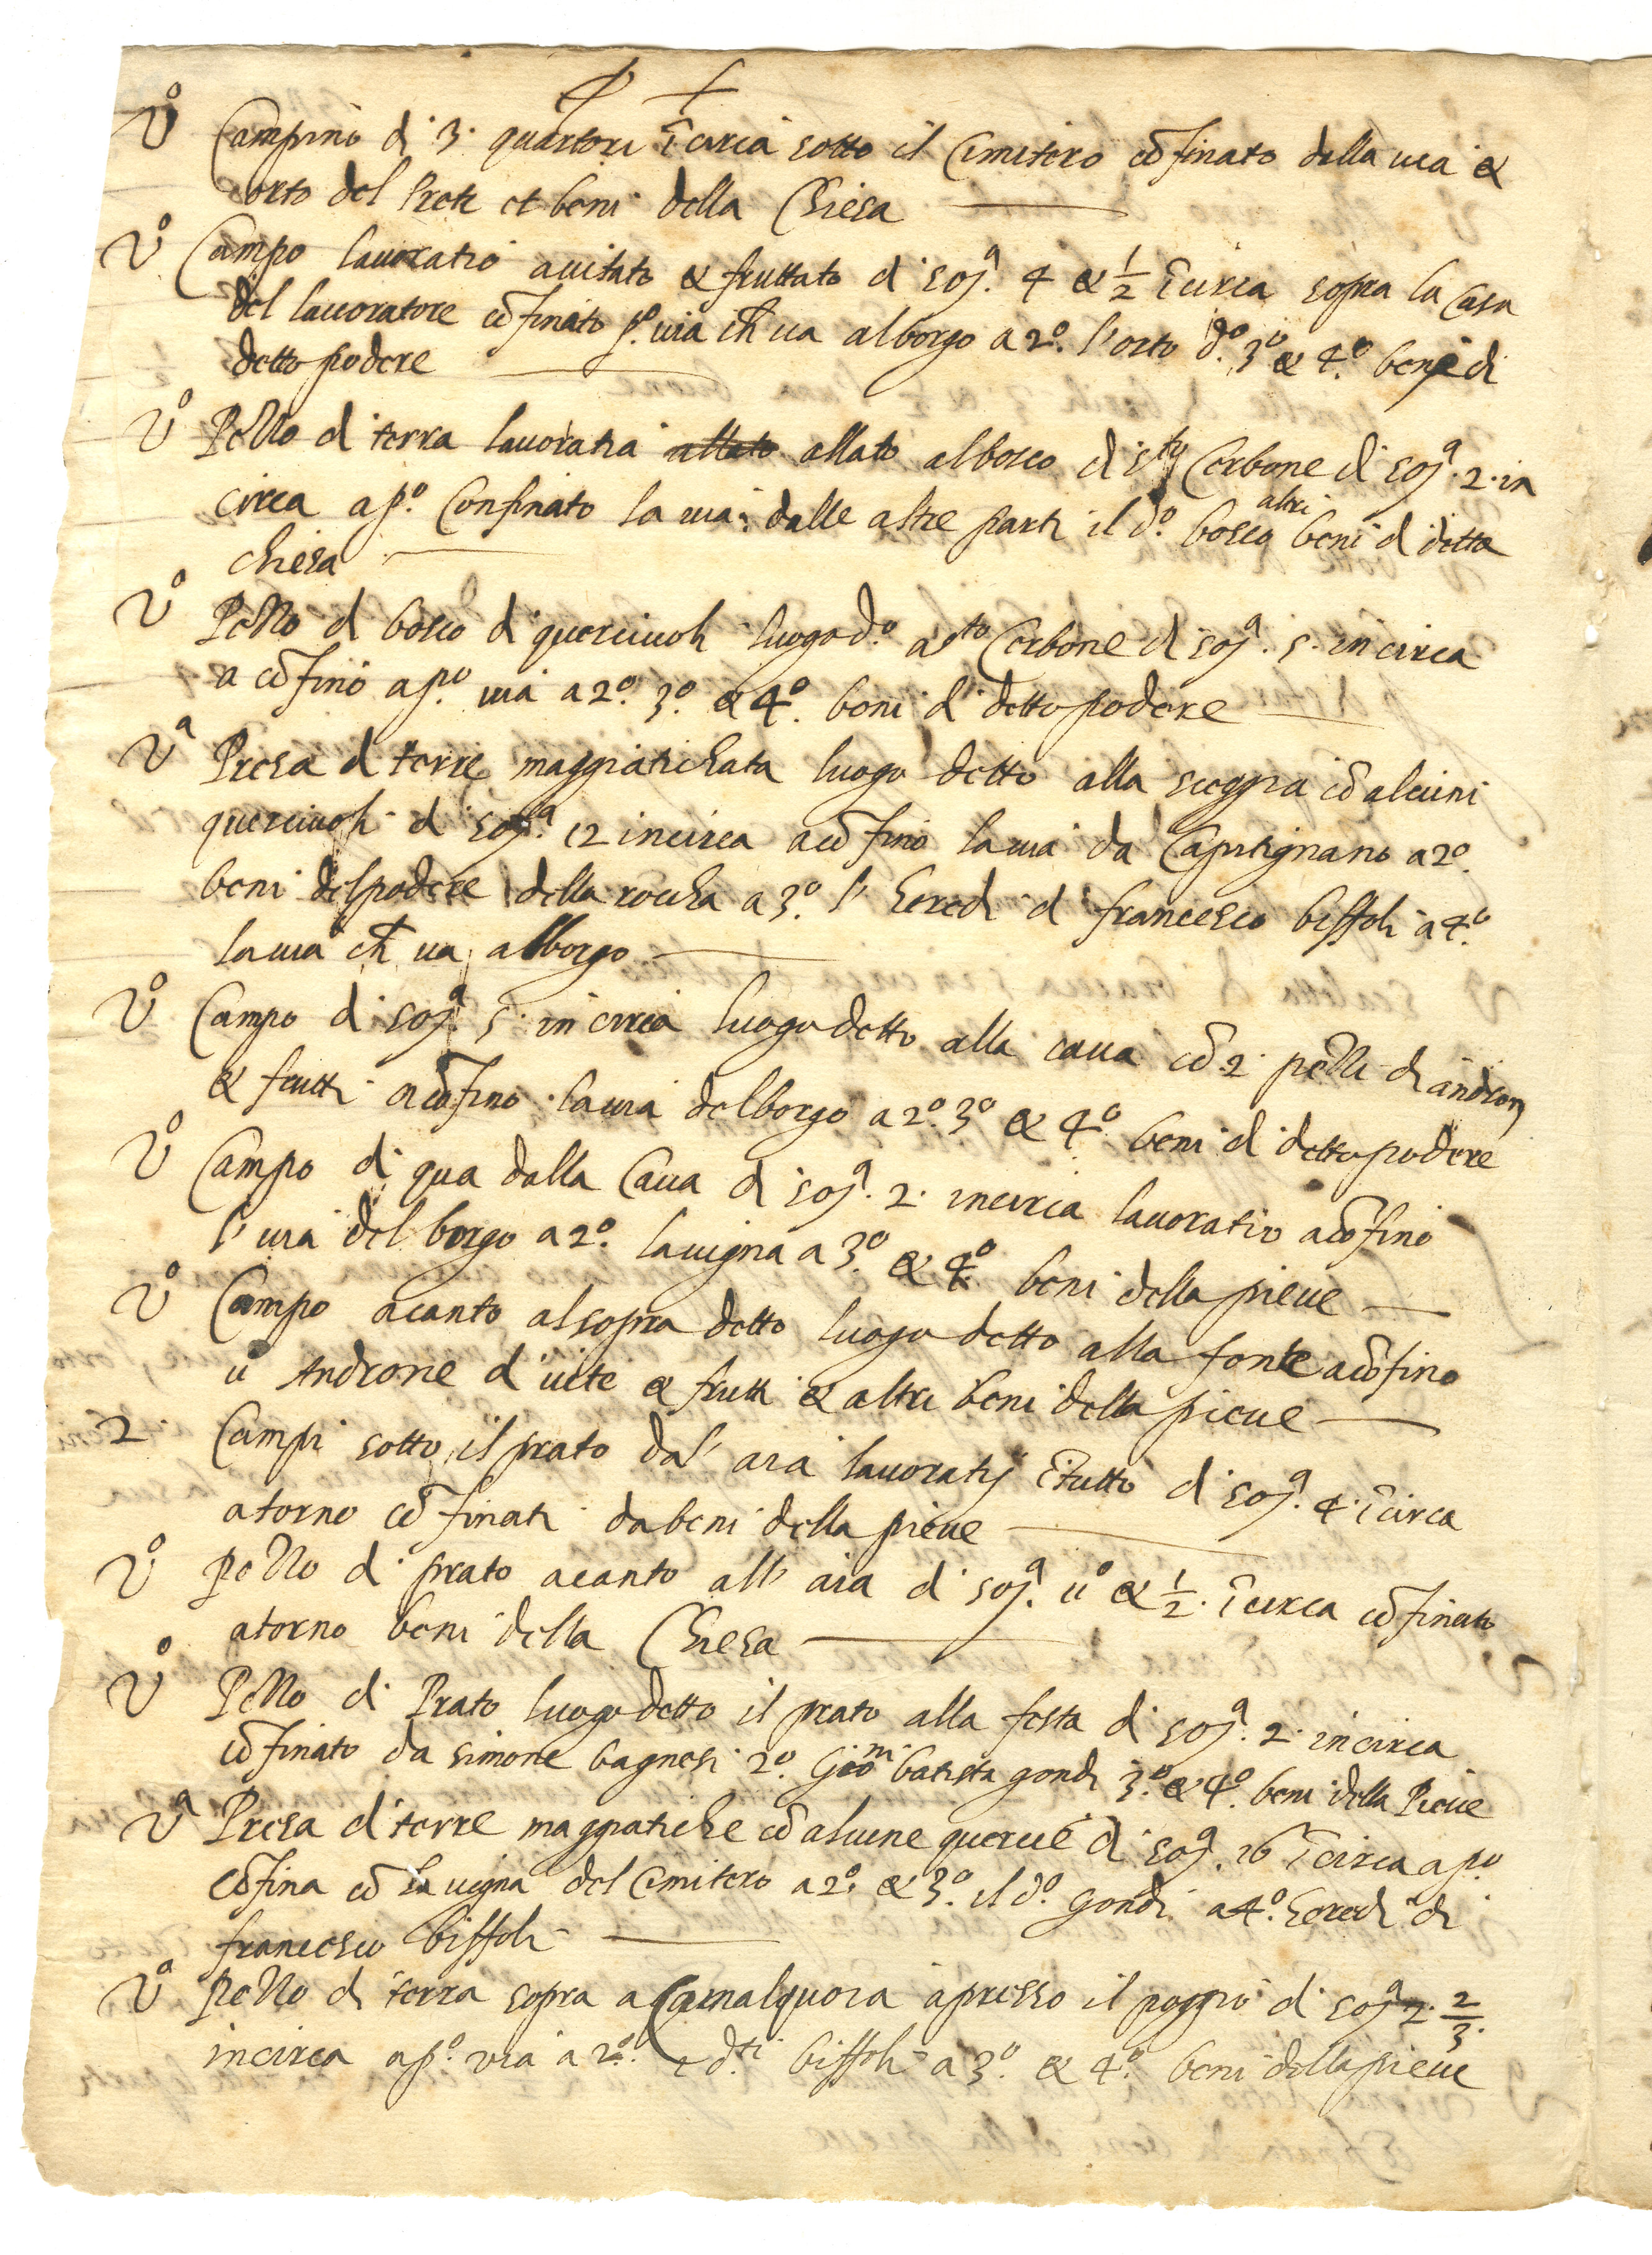 Vº Campino di 3 quartori ĩ circa sotto il Cimitero cõfinato dalla uia &
orto del Prete et beni della Chiesa
Vº Campo lauoratio auitato & fruttato di soj.ª 4 & 1/2 ĩ circa sopra la Casa
del lauoratore cõfinato pº. uia ch̃ ua al borgo a 2º. l'orto d.º 3º & 4.º beni di
detto podere
Vº Pezzo di terra lauoratia allato al bosco di s.to Cerbone di soj.ª 2. in
circa a pº. Confinato la uia: dalle altre parti il d.º bosco altri beni di detta
chiesa
Vº Pezzo di bosco di querciuoli luogo d.º a s.to Cerbone di soj.ª 5. in circa
a cõfino a pº. uia a 2º. 3º. & 4º. beni di detto podere
Vª Presa di terre maggiatichata luogo detto alla scoggia cõ alcuni
querciuoli di soj.ª 12 in circa a cõfino la uia da Caprignano a 2º.
beni del podere della roccha a 3º. l' heredi di francesco biffoli a 4º.
la uia ch̃ ua al borgo
Vº Campo di soj.ª 5. in circa luogo detto alla caua cõ 2. pezzi di androni
& frutti a cõfino la uia del borgo a 2º. 3º & 4º. beni di detto podere
Vº Campo di qua dalla Caua di soj.ª 2. in circa lauoratio a cõfino
l' uia del borgo a 2º. la uigna a 3º. & 4º. beni della pieue
Vº Campo acanto al sopra detto luogo detto alla fonte a cõfino
ũ Androne di uite & frutti & altri beni della pieue
2. Campi sotto il prato dal' aia lauoratij ĩ tutto di soj.ª 4. ĩ circa
atorno cõfinati da beni della pieue
Vº pezzo di prato acanto all' aia di soj.ª uº & 1/2. ĩ circa cõfinato
atorno beni della Chiesa
Vº Pezzo di Prato luogo detto il prato alla festa di soj.ª 2. in circa
cõfinato da simone bagnesi 2º. Gio: batista gondi 3º. & 4º. beni della Pieue
Vª Presa di terre maggiatiche cõ alcune quercie di soj.ª 16 ĩ circa a pº.
cõfina cõ la uigna del Cimitero a 2º. & 3º. il d.º gondi a 4º. heredi di
francesco biffoli
Vº Pezzo di terra sopra a Camalquora apresso il poggio di soj.ª 2. 2/3.
in circa a pº. uia a 2º. e d.ti biffoli a 3º. & 4º. beni della pieue